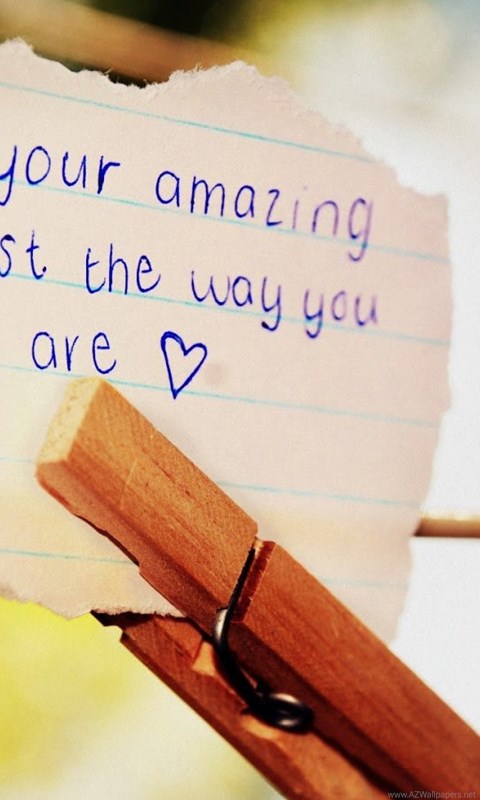 your amazing
st the way you
are ♡
www.AZWallpapers.net